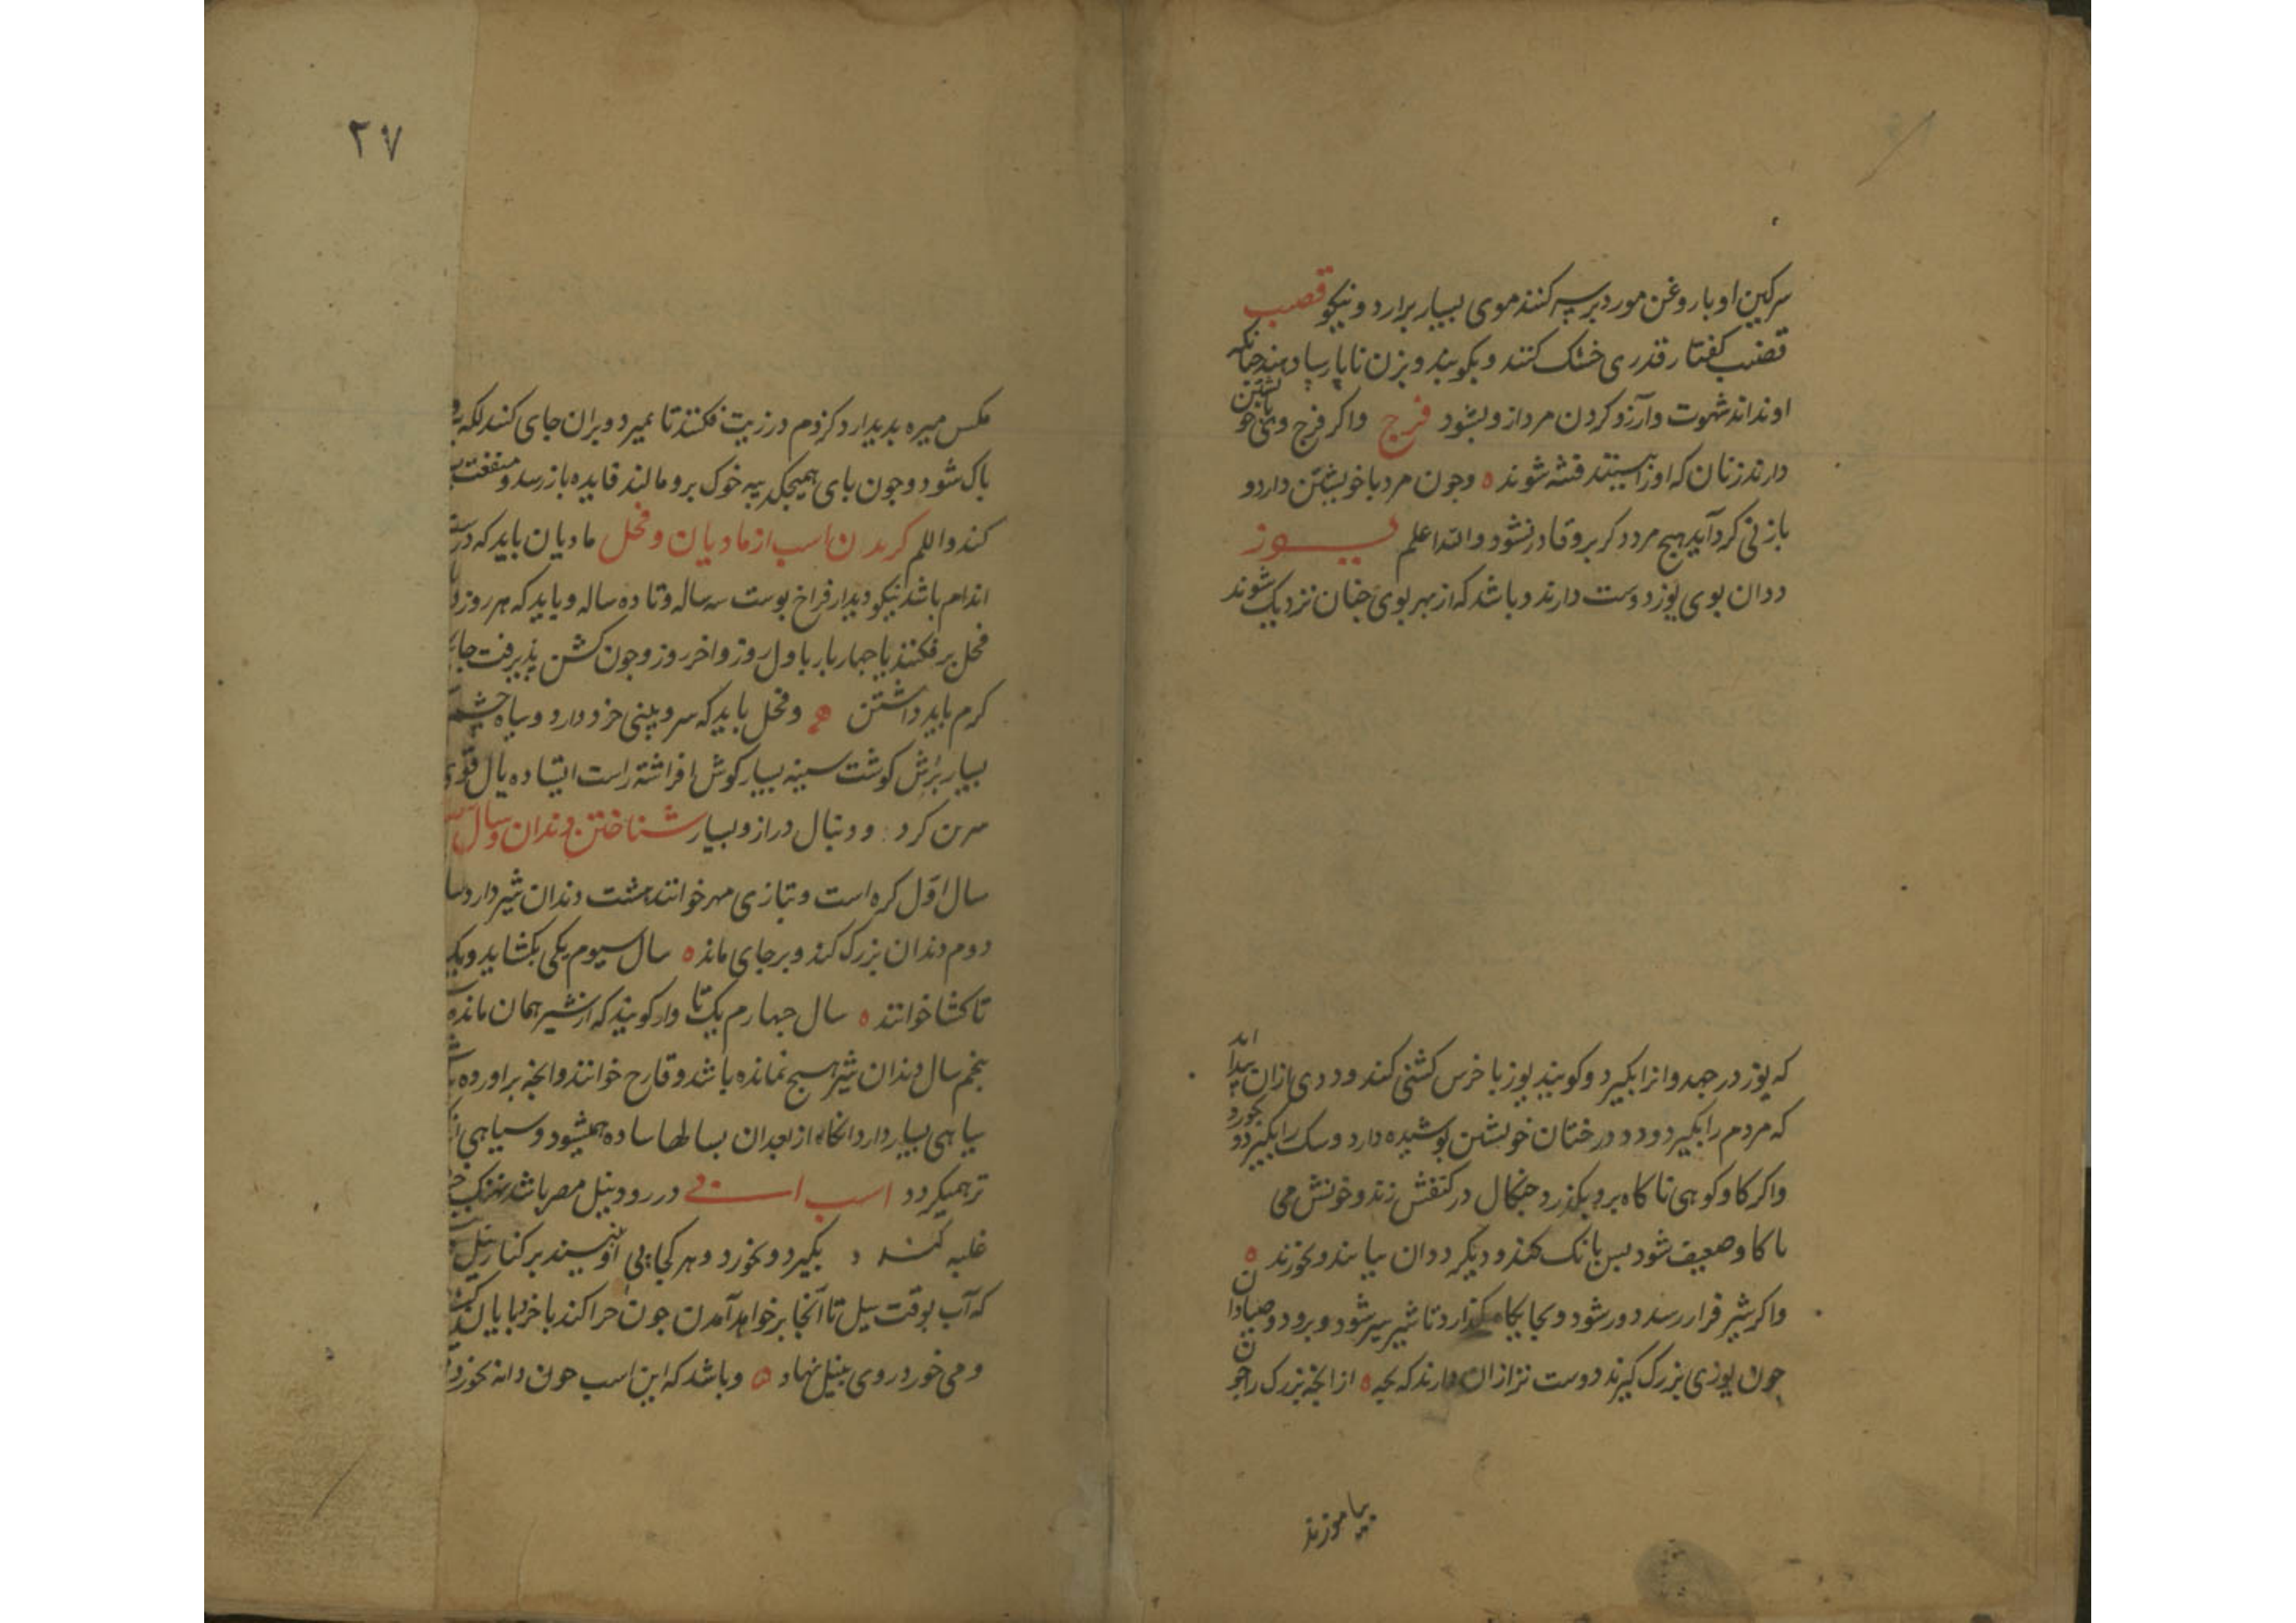 سرکین او با روغن مورد بر سر کنند موی بسیار برارد و نیکو قصب
قضیب کفتار قدری خشک کنند و بکویند و بزن ناپارسا دهند چنانکه
او نداند شهوت و آرزو کردن مرد از و بشود فرج واکر فرج وی با خویشتن
دارند زنان که او را بینند فتنه شوند وچون مرد با خویشتن دارد و
با زنی کرد آید هیچ مرد دکر برو قادر نشود والله اعلم یوز
ددان بوی یوز دوست دارند و باشد که از بهر بوی چنان نزدیک شوند
که یوز در جهد وانرا بکیرد وکویند یوز با خرس کشنی کند و ددی ازان پیدا اید
که مردم را بکیرد و در درختان خویشتن پوشیده دارد وسک را بکیرد و بخورد
واکر کاو کوهی ناکاه برو بکذرد چنکال در کتفش زند و خونش می
تا کاو ضعیف شود پس بانک کند و دیکر ددان بیایند و بخورند
واکر شیر فراز رسد دور شود و بجایکاه بکذارد تا شیر سیر شود و برود و صیادان
چون یوزی بزرک کیرند دوست تر ازان دارند که بچه ازانچه بزرک را چون
بیاموزند
۲۷
مکس میره بدیدارد کزدم در زیت فکنند تا بمیرد و بران جای کنند لکه
باک شود وجون بای همیجکد پیه خوک برو مالند فایده باز رسد و منفعت
کند واللم کریدن اسب از مادیان و فحل مادیان باید که درست
اندام باشد نیکو دیدار فراخ بوست سه ساله و تا ده ساله و باید که هر روز
فحل بر فکنند یا جهار بار باول روز واخر روز وجون کشن پذیرفت
کرم باید داشتن وفحل باید که سر و بینی خرد دارد و سیاه چشم
بسیار برش کوشت سینه بسیار کوش افراشته راست ایستاده یال قوی
سرن کرد و دنبال دراز و بسیار شناختن دندان و سال
سال اول کره است و بتازی مهر خوانند هشت دندان شیر دارد
دوم دندان بزرک کند و برجای ماند سال سیوم یکی بکشاید
تا کشا خوانند سال جهارم یک تا وار کویند که از شیر همان مانده
بنجم سال دندان شیر هیچ نمانده باشد و قارح خوانند وانچه براورده
سیاهی بسیار دارد انکاه از بعد ان بسالها ساده همیشود و سیاهی
تر همیکردد اسب ابی در رود نیل مصر باشد نهنک
غلبه کند و بکیرد و بخورد و هر کجا پی او بینند بر کنار نیل
که آب بوقت سیل تا آنجا بر خواهد آمدن جون چرا کند باخر
و می خورد روی بنیل نهاد وباشد که این اسب جون دانه بخورد